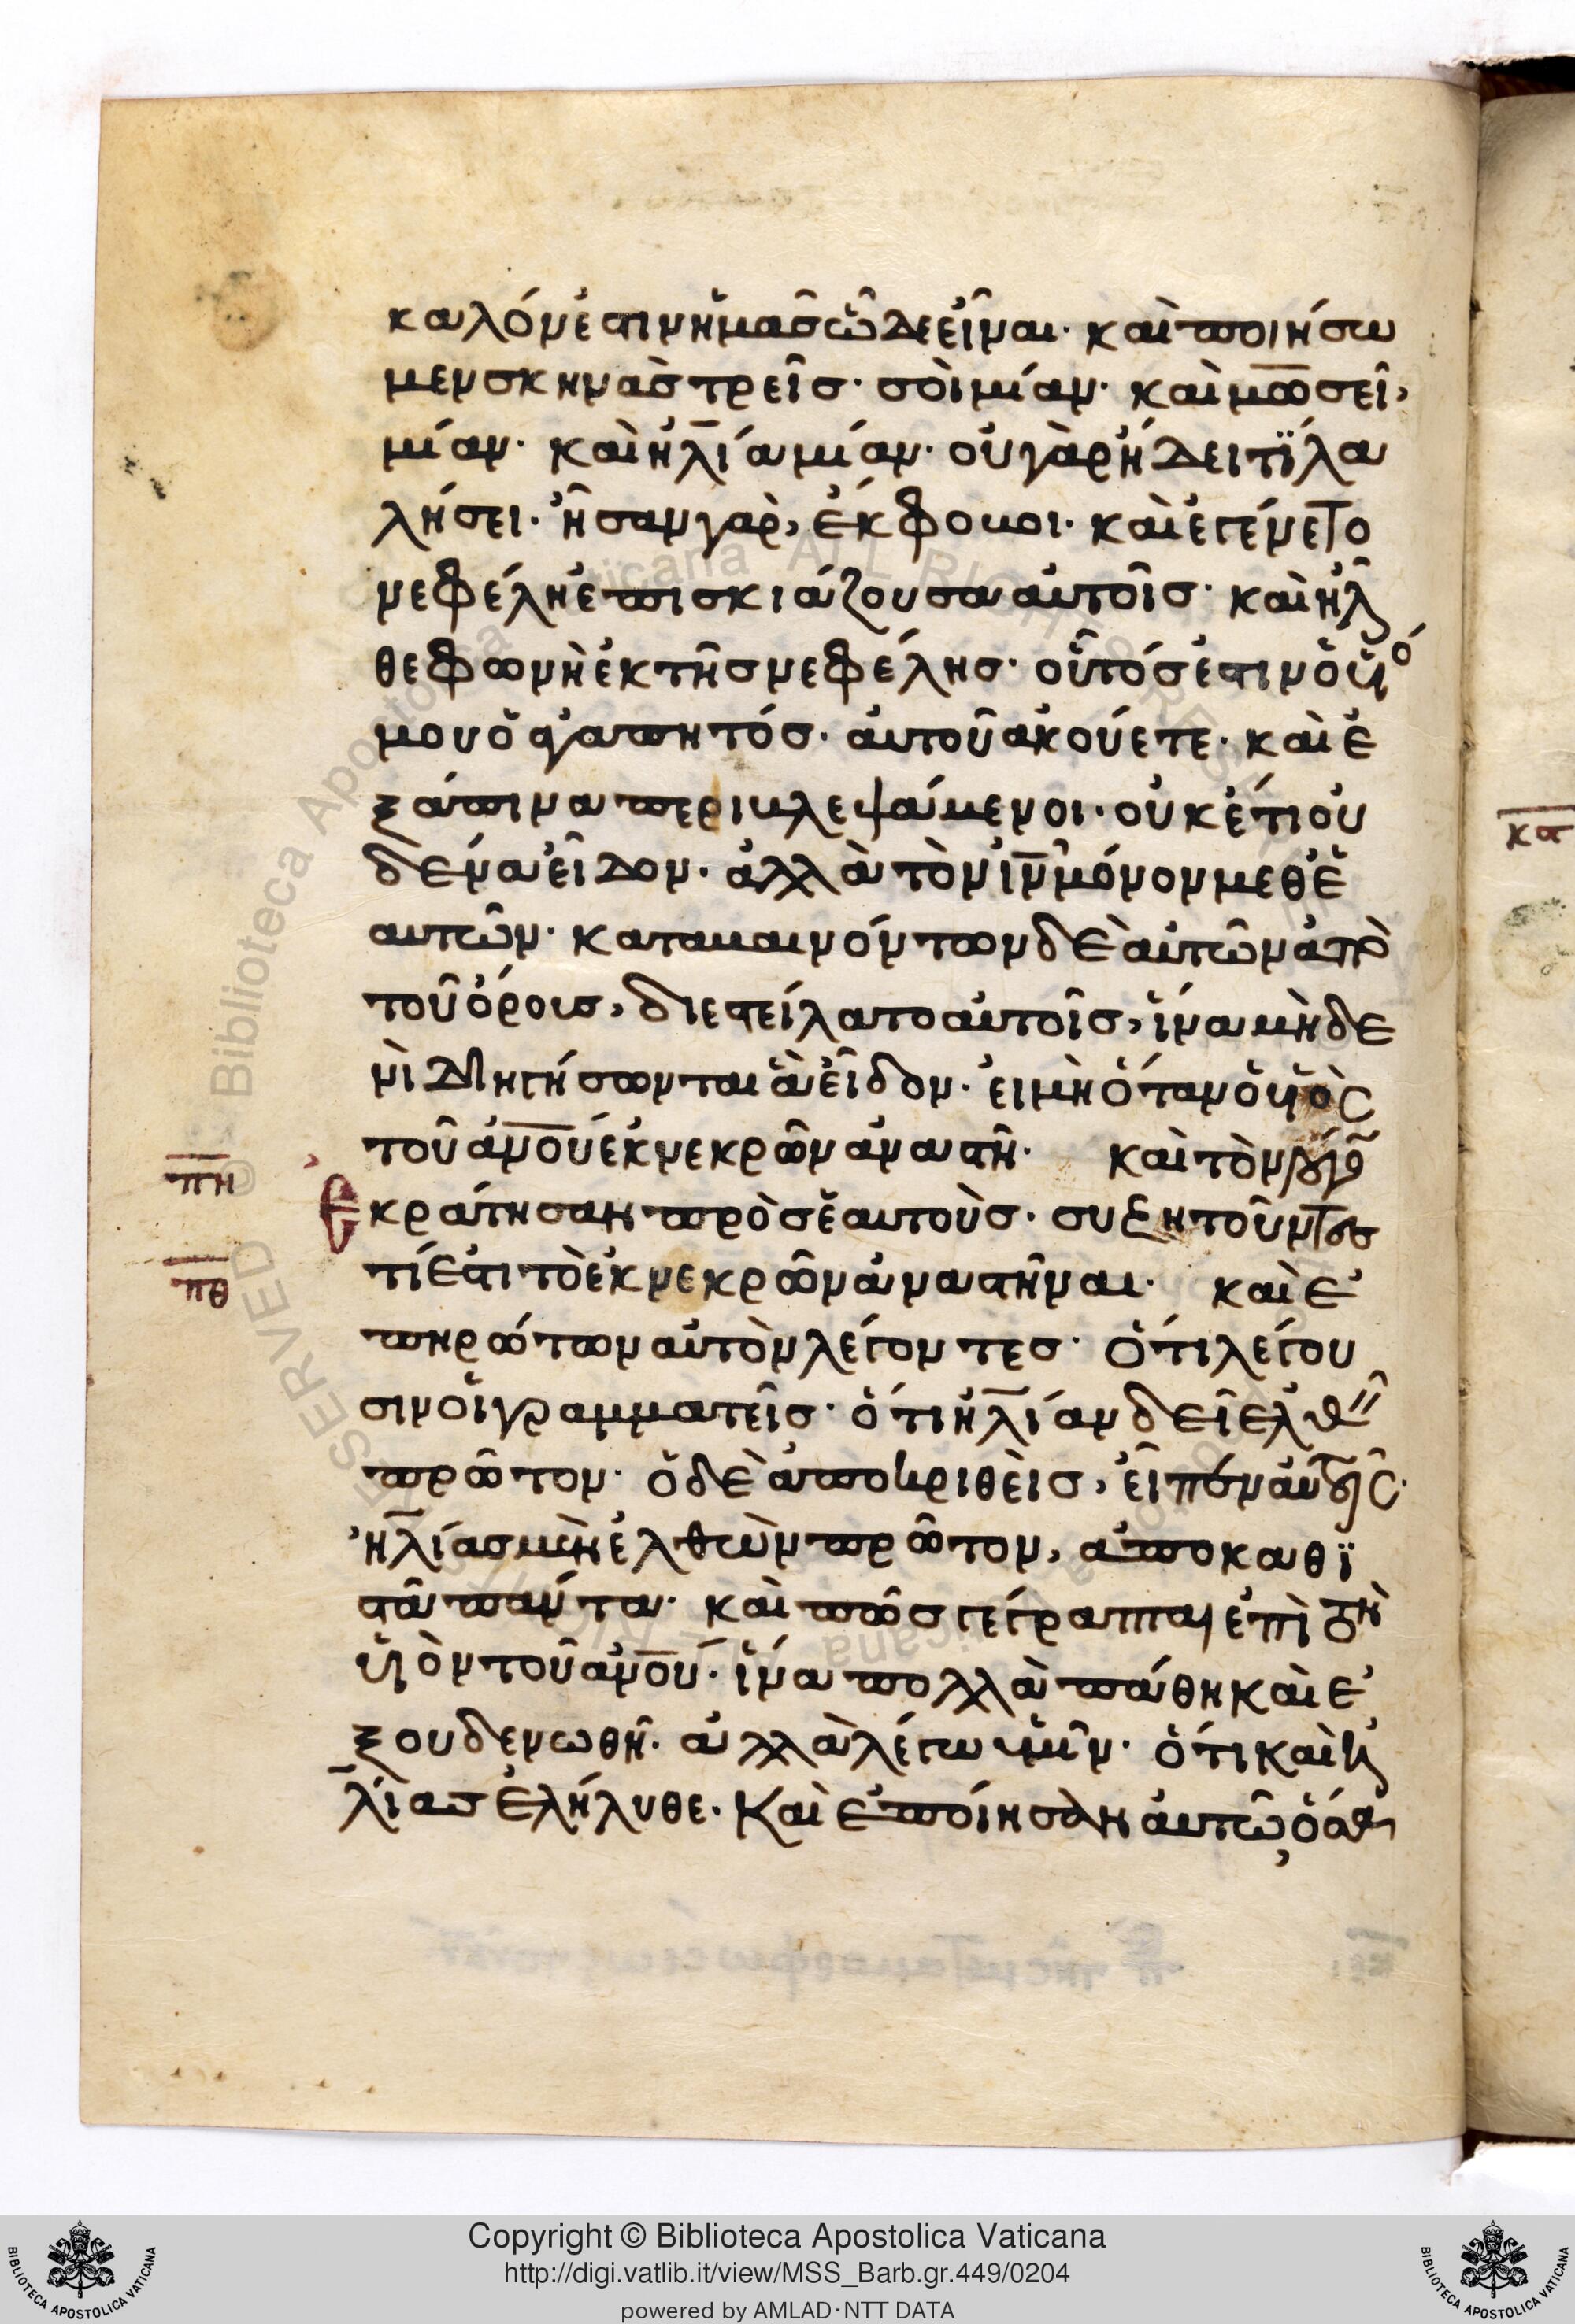 καλόν ἐστιν ἡμᾶς ὧδε εἶναι· καὶ ποιήσω
μεν σκηνὰς τρεῖς· σοὶ μίαν· καὶ μωσεῖ,
μίαν· καὶ ἠλίᾳ μίαν· οὐ γὰρ ἤδει τί λα
λήσει· ἦσαν γὰρ, ἔκφοβοι· καὶ ἐγένετο
νεφέλη ἐπισκιάζουσα αὐτοῖς· καὶ ἦλ
θε φωνὴ ἐκ τῆς νεφέλης· οὗτός ἐστιν ὁ υἱό
μου ὁ ἀγαπητός· αὐτοῦ ἀκούετε· καὶ ἐ
ξάπινα περιβλεψάμενοι· οὐκέτι οὐ
δένα εἶδον· ἀλλὰ τὸν ιν μόνον μεθ ἑ
αυτῶν· καταβαινόντων δὲ αὐτῶν ἀπὸ
τοῦ ὄρους, διεστείλατο αὐτοῖς, ἵνα μηδε
νὶ διηγήσωνται ἃ εἶδον· εἰ μὴ ὅταν ὁ υἱὸς
τοῦ ανου ἐκ νεκρῶν ἀναστῆ· καὶ τὸν λόγον
πη
ἐκράτησαν πρὸς ἑαυτοὺς· συζητοῦντες
πθ
τί ἐστι τὸ ἐκ νεκρῶν ἀναστῆναι· καὶ ἐ
πηρώτων αὐτὸν λέγοντες· ὅτι λέγου
σιν οἱ γραμματεῖς· ὅτι ἠλίαν δεῖ ἐλθεῖν
πρῶτον· ὁ δὲ ἀποκριθεὶς, εἶπεν αὐτοῖς·
ἠλίας μὲν ἐλθὼν πρῶτον, ἀποκαθι
στᾶ πάντα· καὶ πῶς γέγραπται ἐπὶ τὸν
υἱὸν τοῦ ανου· ἵνα πολλὰ πάθη καὶ ἐ
ξουδενωθῆ· ἀλλὰ λέγω ὑμῖν· ὅτι καὶ ἠ
λίας ἐλήλυθε· Καὶ ἐποίησαν αὐτῶ ὅσα
κα
Copyright © Biblioteca Apostolica Vaticana
http://digi.vatlib.it/view/MSS_Barb.gr.449/0204
powered by AMLAD·NTT DATA